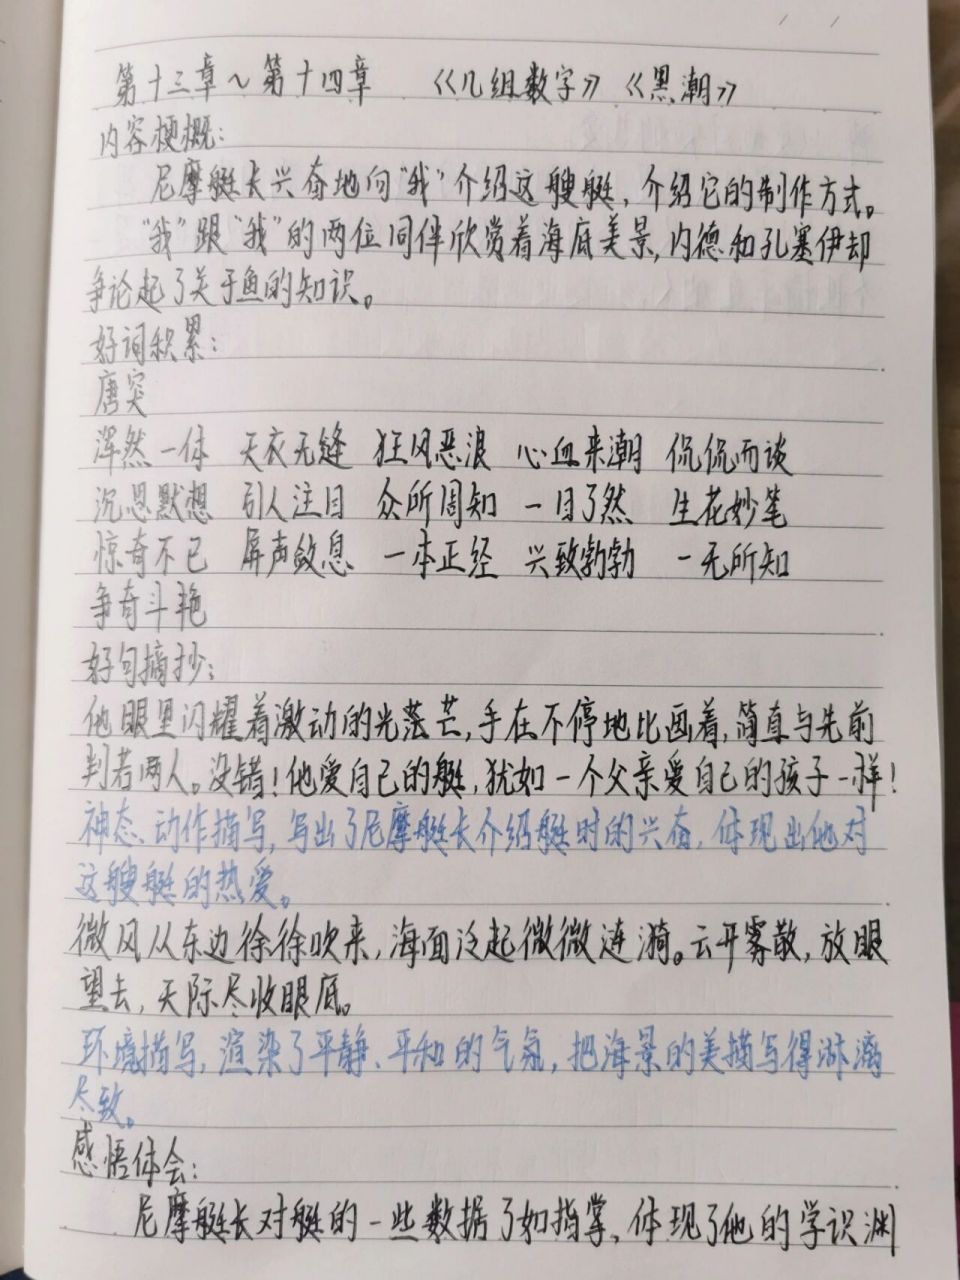 第十三章~第十四章 《几组数字》《黑潮》
内容梗概:
尼摩艇长兴奋地向“我”介绍这艘艇,介绍它的制作方式。
“我”跟“我”的两位同伴欣赏着海底美景,内德和孔塞伊却
争论起了关于鱼的知识。
好词积累:
唐突
浑然一体 天衣无缝 狂风恶浪 心血来潮 侃侃而谈
沉思默想 引人注目 众所周知 一目了然 生花妙笔
惊奇不已 屏声敛息 一本正经 兴致勃勃 一无所知
争奇斗艳
好句摘抄:
他眼里闪耀着激动的光茫芒,手在不停地比画着,简直与先前
判若两人。没错!他爱自己的艇,犹如一个父亲爱自己的孩子一样!
神态、动作描写,写出了尼摩艇长介绍艇时的兴奋,体现出他对
这艘艇的热爱。
微风从东边徐徐吹来,海面泛起微微涟漪。云开雾散,放眼
望去,天际尽收眼底。
环境描写,渲染了平静、平和的气氛,把海景的美描写得淋漓
尽致。
感悟体会:
尼摩艇长对艇的一些数据了如指掌,体现了他的学识渊